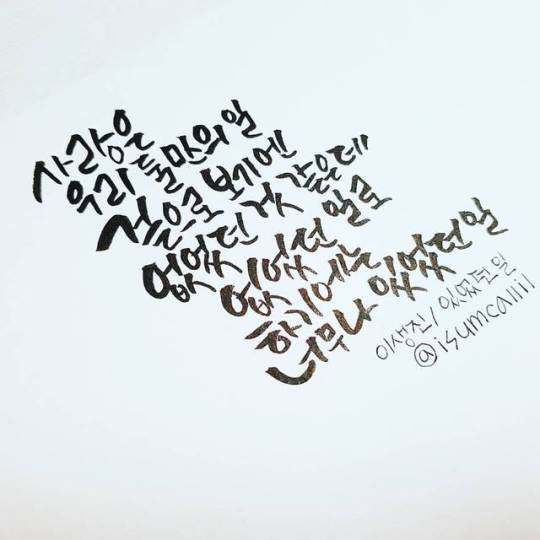 사랑은
우리 둘만의 일
겉으로 보기엔
없었던 것 같은데
없었던 일로
하기에는
너무나 있었던 일
이생진/있었던 일
@isumcalli1